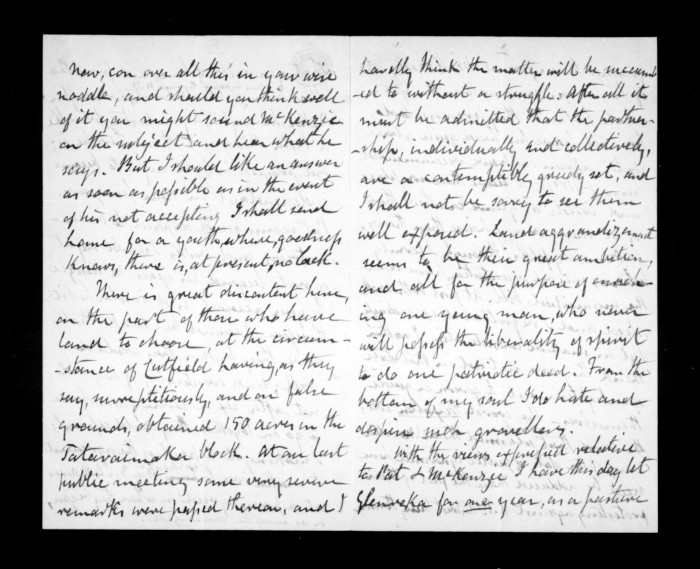 Now, con over all this in your wise
noddle, and should you think well
of it you might sound McKenzie
on the subject and hear what he
says. But I should like an answer
as soon as possible as in the event
of his not accepting I shall send
home for a youth, where, goodness
knows, there is, at present, no lack.
There is great discontent here,
on the part of those who have
land to choose, at the circum-
-stance of Cutfield having, as they
say, surreptitiously, and on false
grounds, obtained 150 acres in the
Tataraimaka block. At our last
public meeting some very severe
remarks were passed thereon, and I
hardly think the matter will be succumb-
ed to without a struggle. After all it
must be admitted that the partner-
-ship, individually and collectively,
are a contemptibly greedy set, and
I shall not be sorry to see them
well exposed. Land aggrandizement
seems to be their great ambition,
and all for the purpose of enrich-
ing one young man, who never
will possess the liberality of spirit
to do one patriotic deed. From the
bottom of my soul I do hate and
despise such grovellers.
With the views expressed relative
to Pat & McKenzie I have this day let
Glenveka for one year, as a pasture